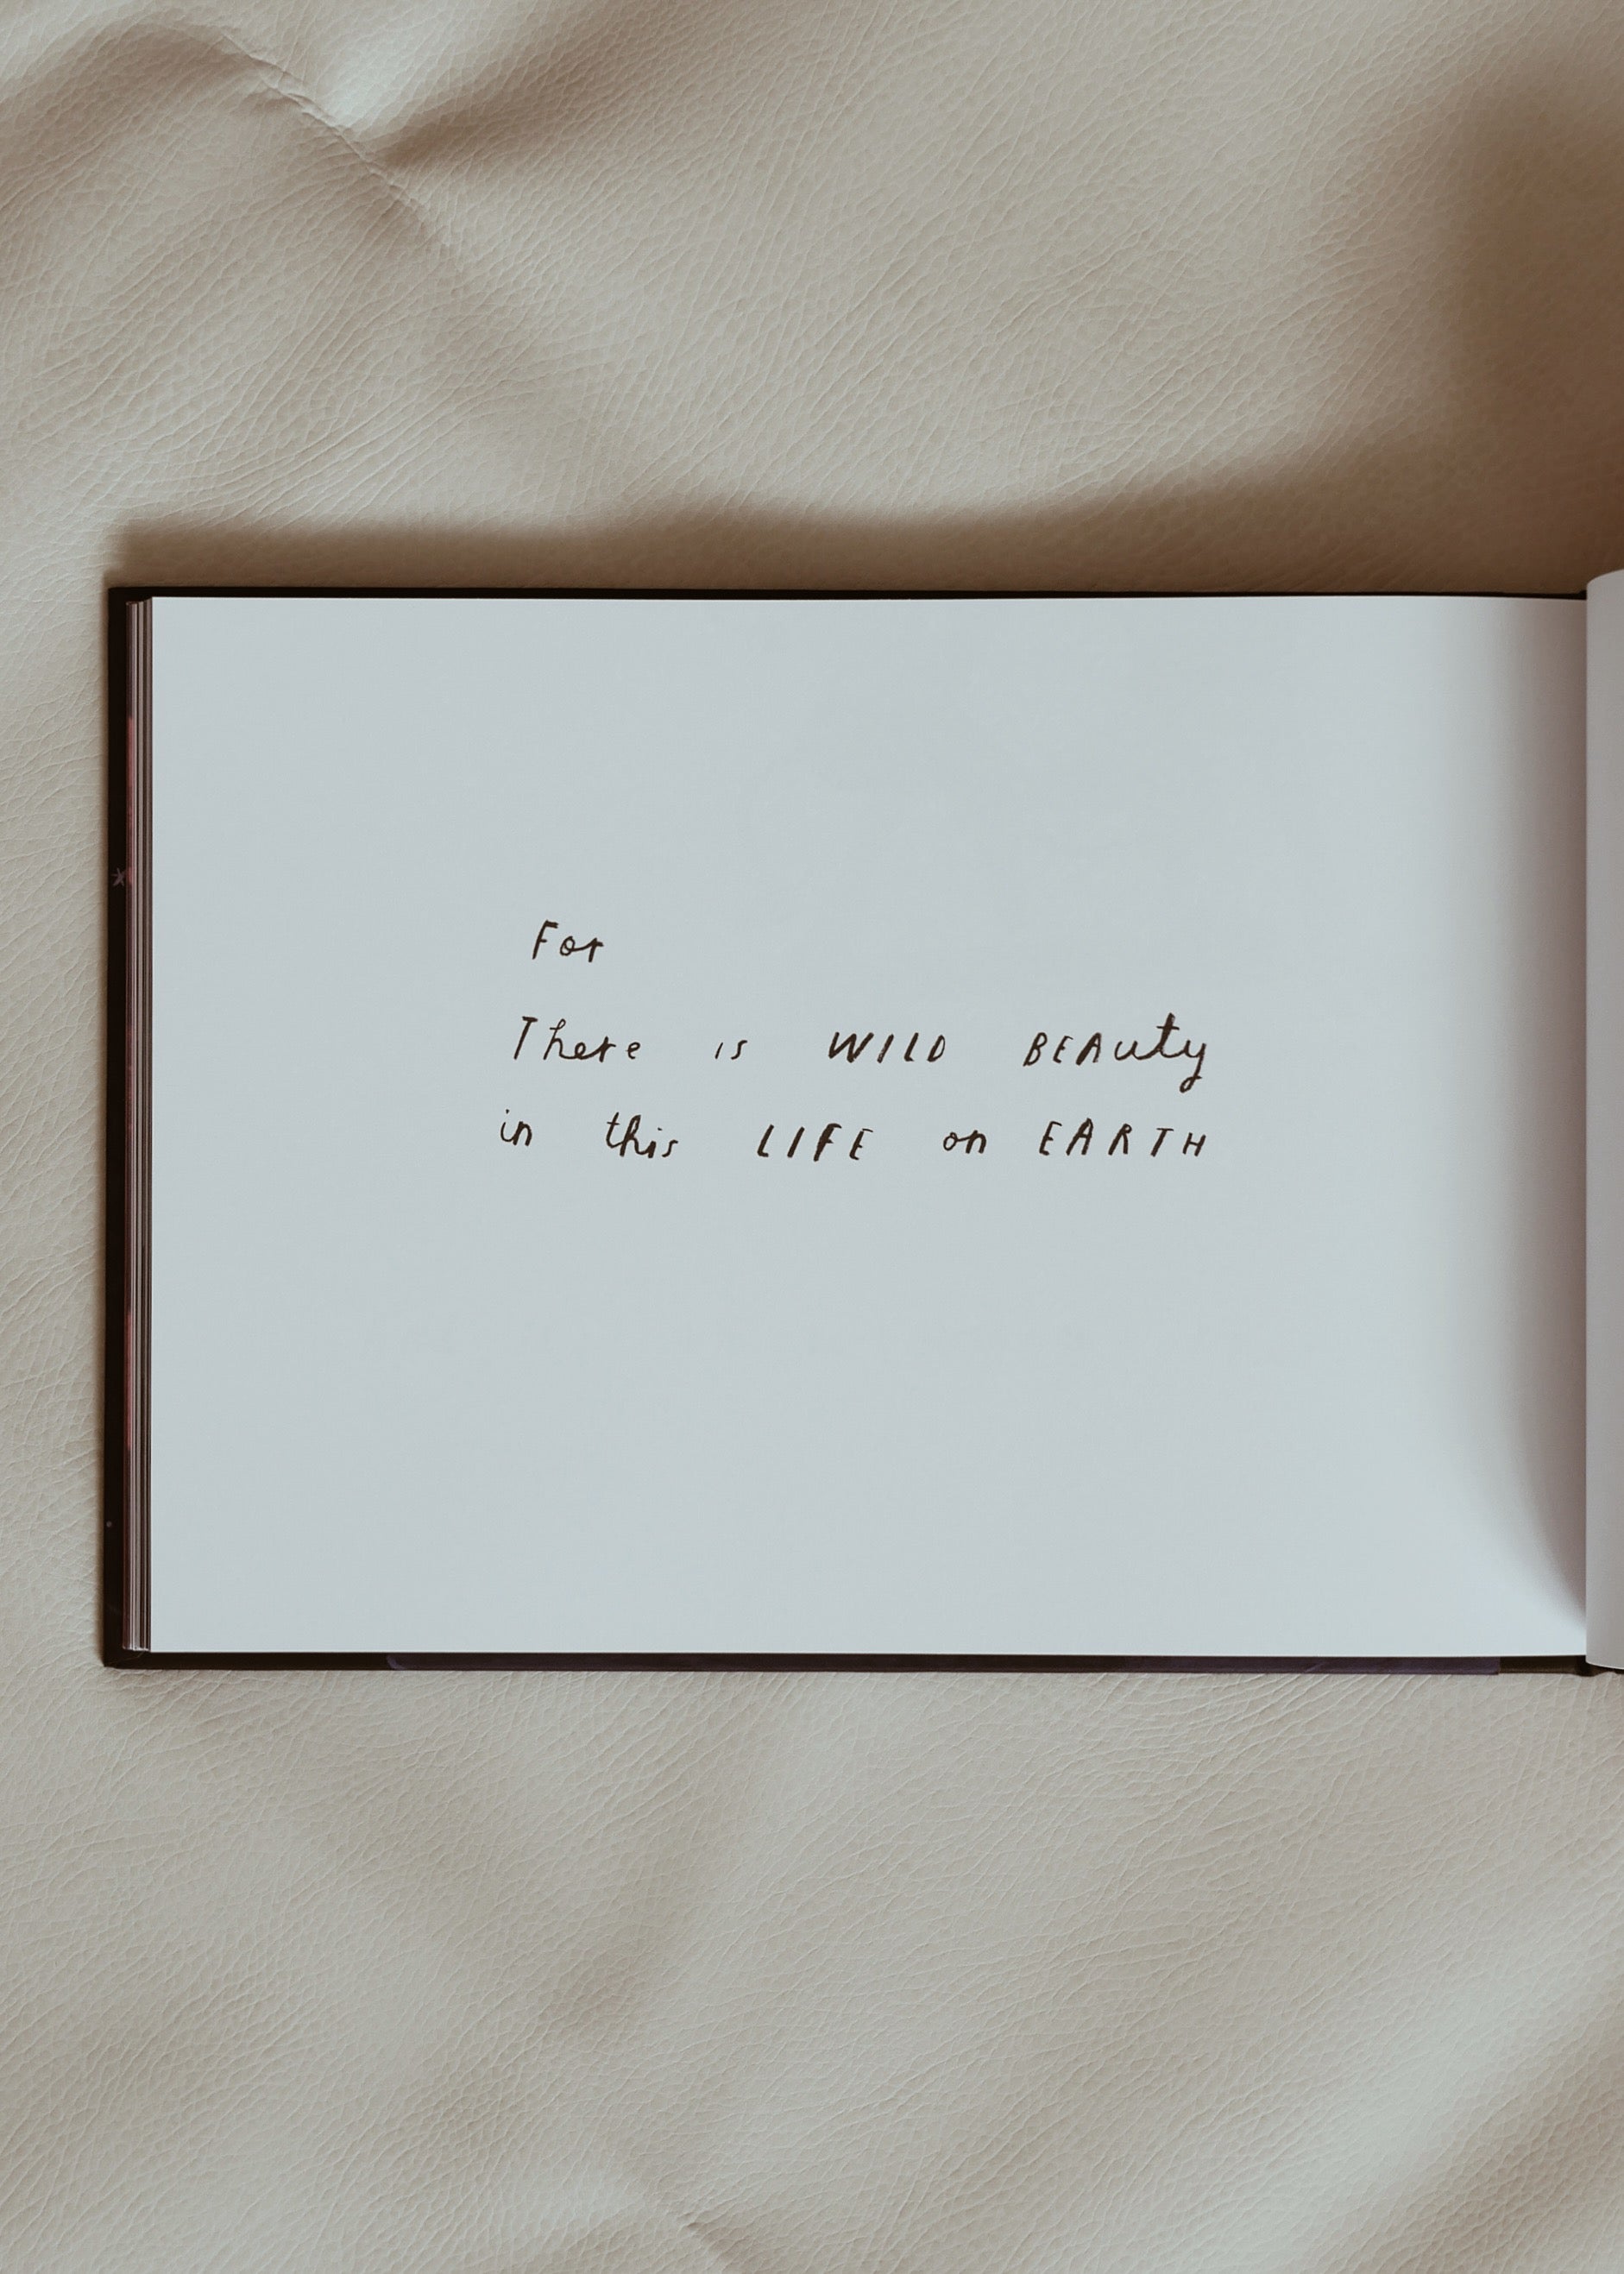 For
There is WILD BEAuty
in this LIFE on EARTH